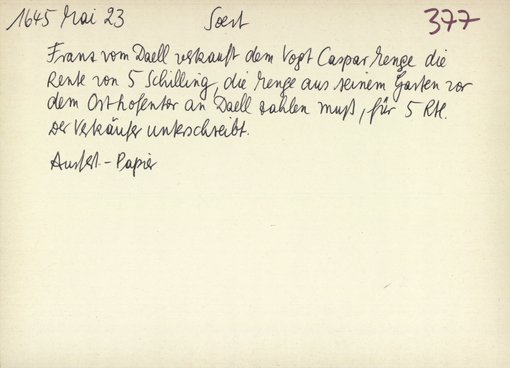 1645 Mai 23 Soest 377
Franz vom Daell verkauft dem Vogt Caspar Menge die
Rente von 5 Schilling, die Menge aus seinem Garten vor
dem Osthofentor an Daell zahlen muß, für 5 Rtl.
Der Verkäufer unterschreibt.
Ausfert.-Papier